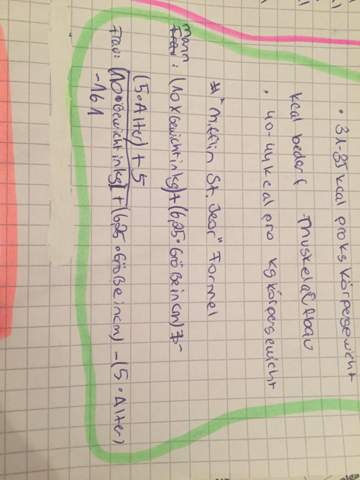 • 31-35 kcal pro kg Körpergewicht
kcal bedarf Muskelaufbau
• 40-44 kcal pro kg Körpergewicht
# "Mifflin St. Jeor" Formel
Mann
Frau: (10 x Gewicht in kg) + (6,25 • Größe in cm) -
(5 • Alter) + 5
Frau: (10 • Gewicht in kg) + (6,25 • Größe in cm) - (5 • Alter)
- 161